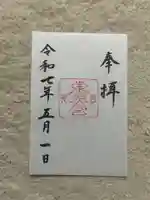 奉拝
令和七年五月一日